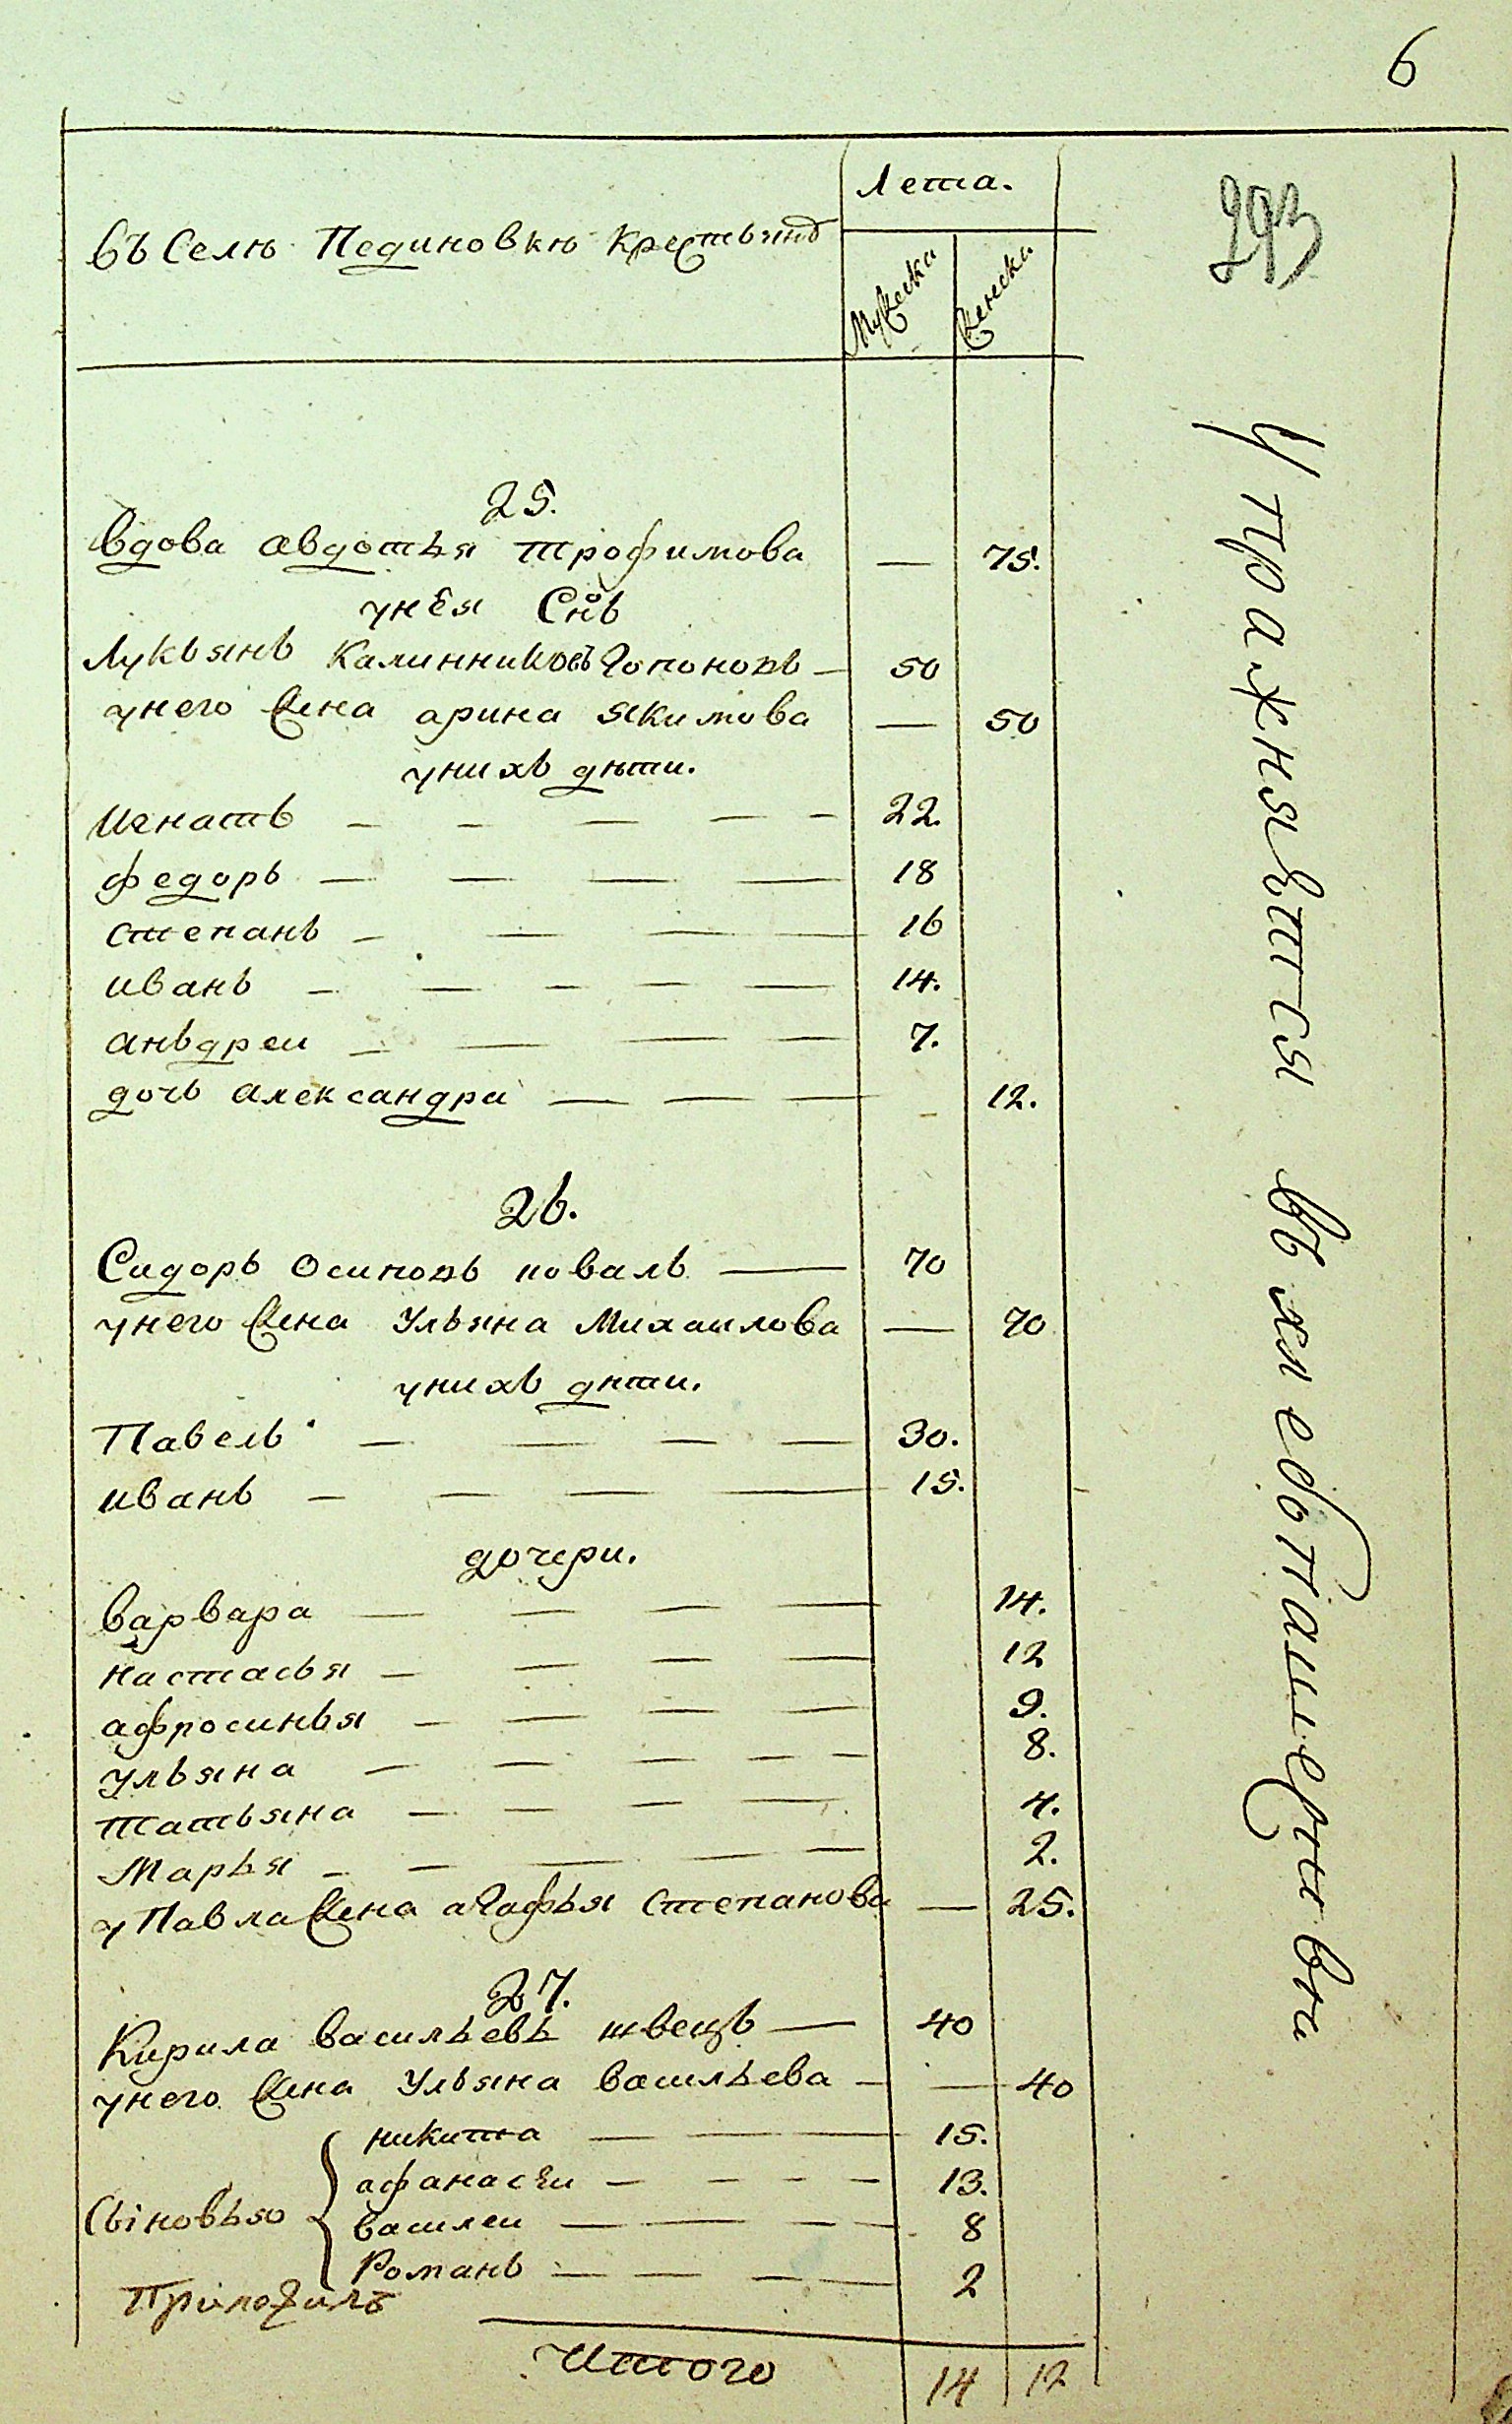 6
Лета.
293
въ Селѣ Пединовкѣ Крестьянъ
Мужеска
Женска
25.
вдова авдотья трофимова — 75.
унея Снъ
Лукьянъ Калинниковъ Гопоновъ — 50
унего Жена арина Якимова — 50
унихъ дѣти.
Игнатъ — — — — — 22.
федоръ — — — — 18
степанъ — — — — 16
иванъ — — — — — 14.
аньдреи — — — — 7.
дочь александра — — — 12.
26.
Сидоръ осиповъ коваль — 70
унего Жена Ульяна Михаилова — 70
унихъ дѣти.
Павелъ — — — — 30.
иванъ — — — — — 15.
дочери.
варвара — — — — 14.
настасья — — — — 12
афросинья — — — — 9.
ульяна — — — — — 8.
татьяна — — — — 4.
Марья — — — — — 2.
у Павла Жена агафья степанова — 25.
27.
Кирила васильевъ швецъ — 40
унего Жена Ульяна васильева — — 40
никита — — — 15.
афанасеи — — — — 13.
Сыновья
василеи — — — — 8
Романъ — — — — 2
Итого 14 12
Упражняются въ хлебопашестве